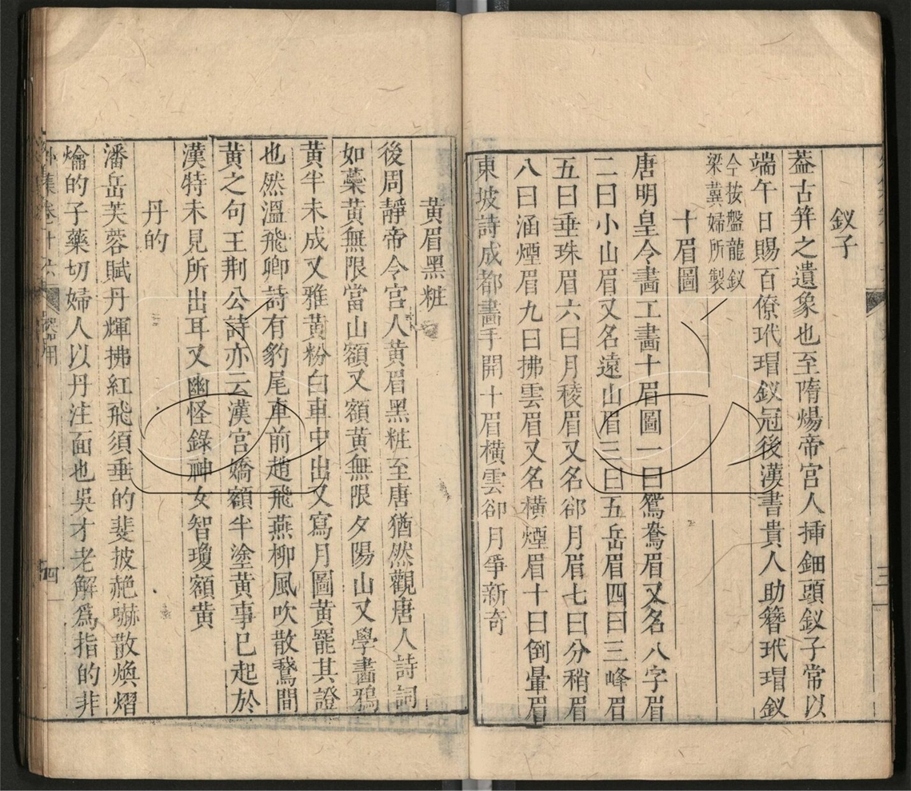 釵子
葢古笄之遺象也至隋煬帝宮人挿鈿頭釵子常以
端午日賜百僚玳瑁釵冠後漢書貴人助簪玳瑁釵
今按盤龍釵
梁蓂婦所製
十眉圖
唐明皇令畵工畵十眉圖一曰鴛鴦眉又名八字眉
二曰小山眉又名遠山眉三曰五岳眉四曰三峰眉
五曰垂珠眉六曰月稜眉又名郤月眉七曰分稍眉
八曰涵煙眉九曰拂雲眉又名橫煙眉十曰倒暈眉
東坡詩成都畵手開十眉橫雲郤月爭新奇
黃眉黑粧
後周靜帝令宮人黃眉黑粧至唐猶然觀唐人詩詞
如蘂黃無限當山額又額黃無限夕陽山又學畵鴉
黃半未成又雅黃粉白車中出又寫月圖黃罷其證
也然溫飛卿詩有豹尾車前趙飛燕柳風吹散鵞間
黃之句王荊公詩亦云漢宮嬌額半塗黃事已起於
漢特未見所出耳又幽怪錄神女智瓊額黃
丹的
潘岳芙蓉賦丹輝拂紅飛須垂的斐披赩嚇散煥熠
爚的子藥切婦人以丹注面也吳才老解爲指的非